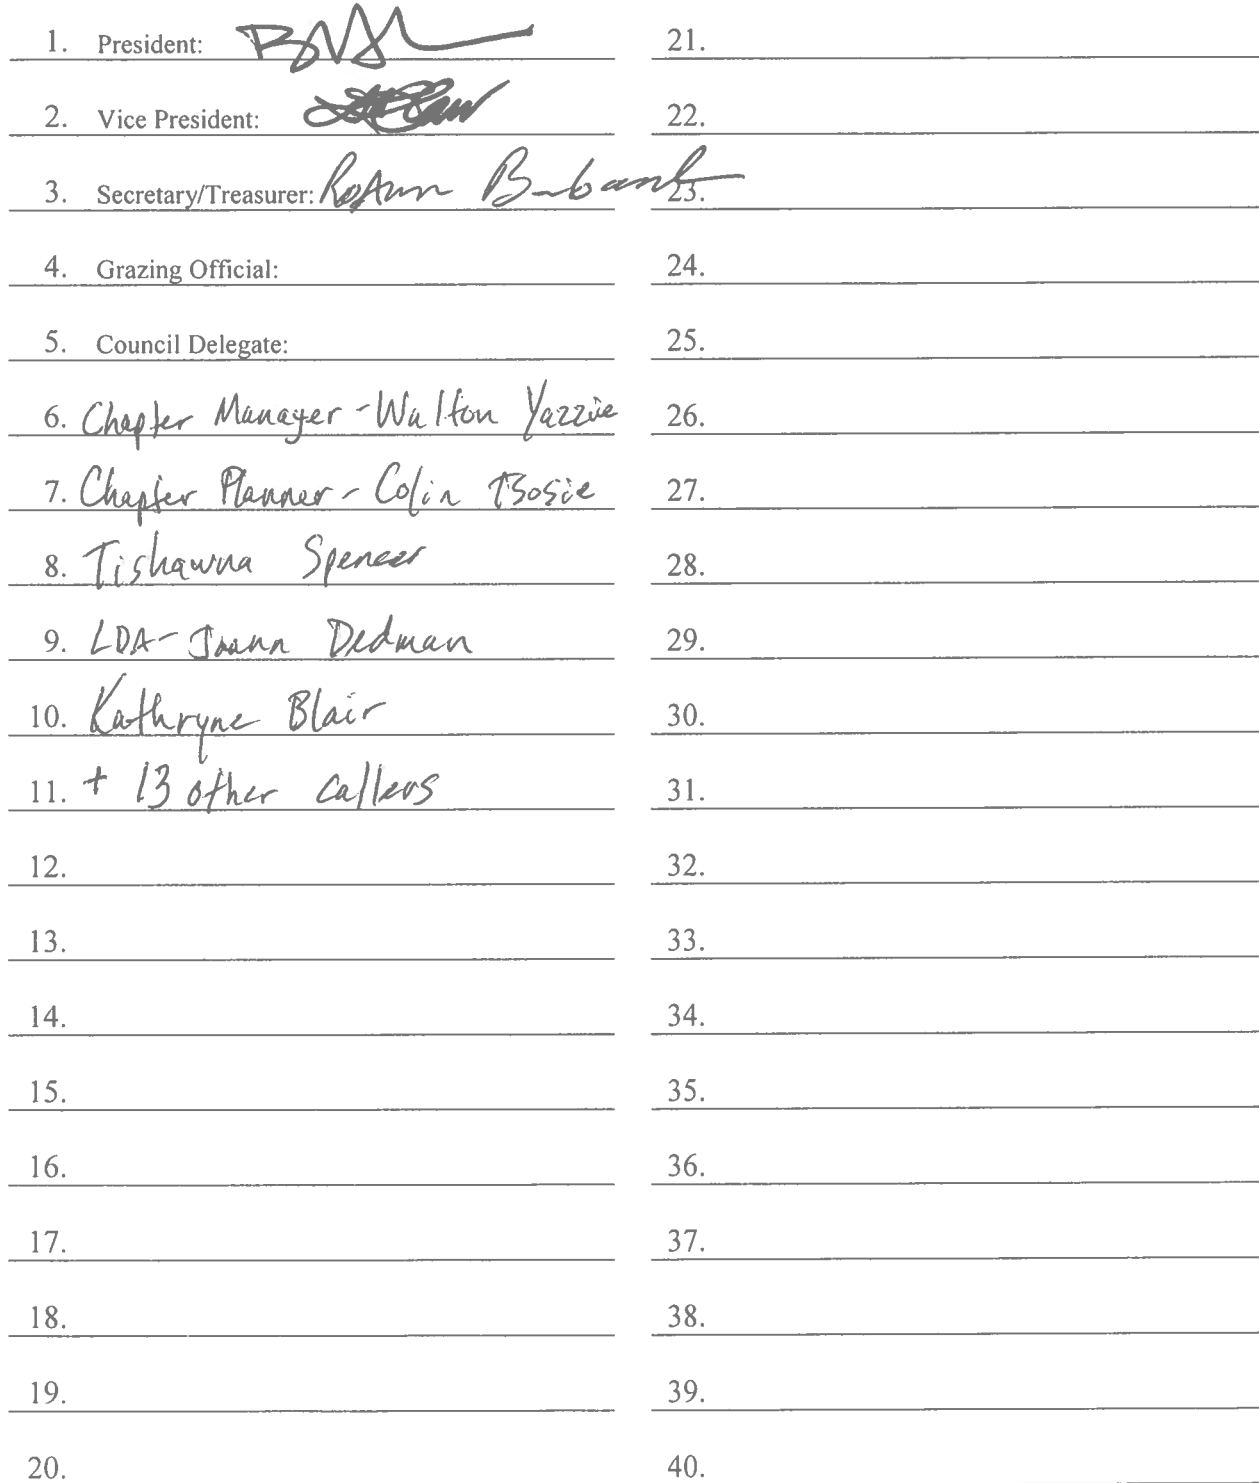 1. President:
2. Vice President:
3. Secretary/Treasurer: RoAnn Burbank
4. Grazing Official:
5. Council Delegate:
6. Chapter Manager - Walton Yazzie
7. Chapter Planner - Colin Tsosie
8. Tishawna Spencer
9. LDA - Joann Dedman
10. Kathryne Blair
11. + 13 other callers
12.
13.
14.
15.
16.
17.
18.
19.
20.
21.
22.
23.
24.
25.
26.
27.
28.
29.
30.
31.
32.
33.
34.
35.
36.
37.
38.
39.
40.